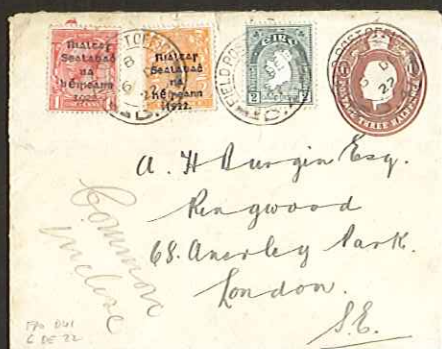 Rialtas
Sealadač
na
hÉireann
1922.
Rialtas
Sealadač
na
hÉireann
1922.
FIELD POST
THREE HALF
A. H Burgin Esq.
Ringwood
68. Anerley Park.
London.
S.E.
Common
FPO D41
6 DE 22